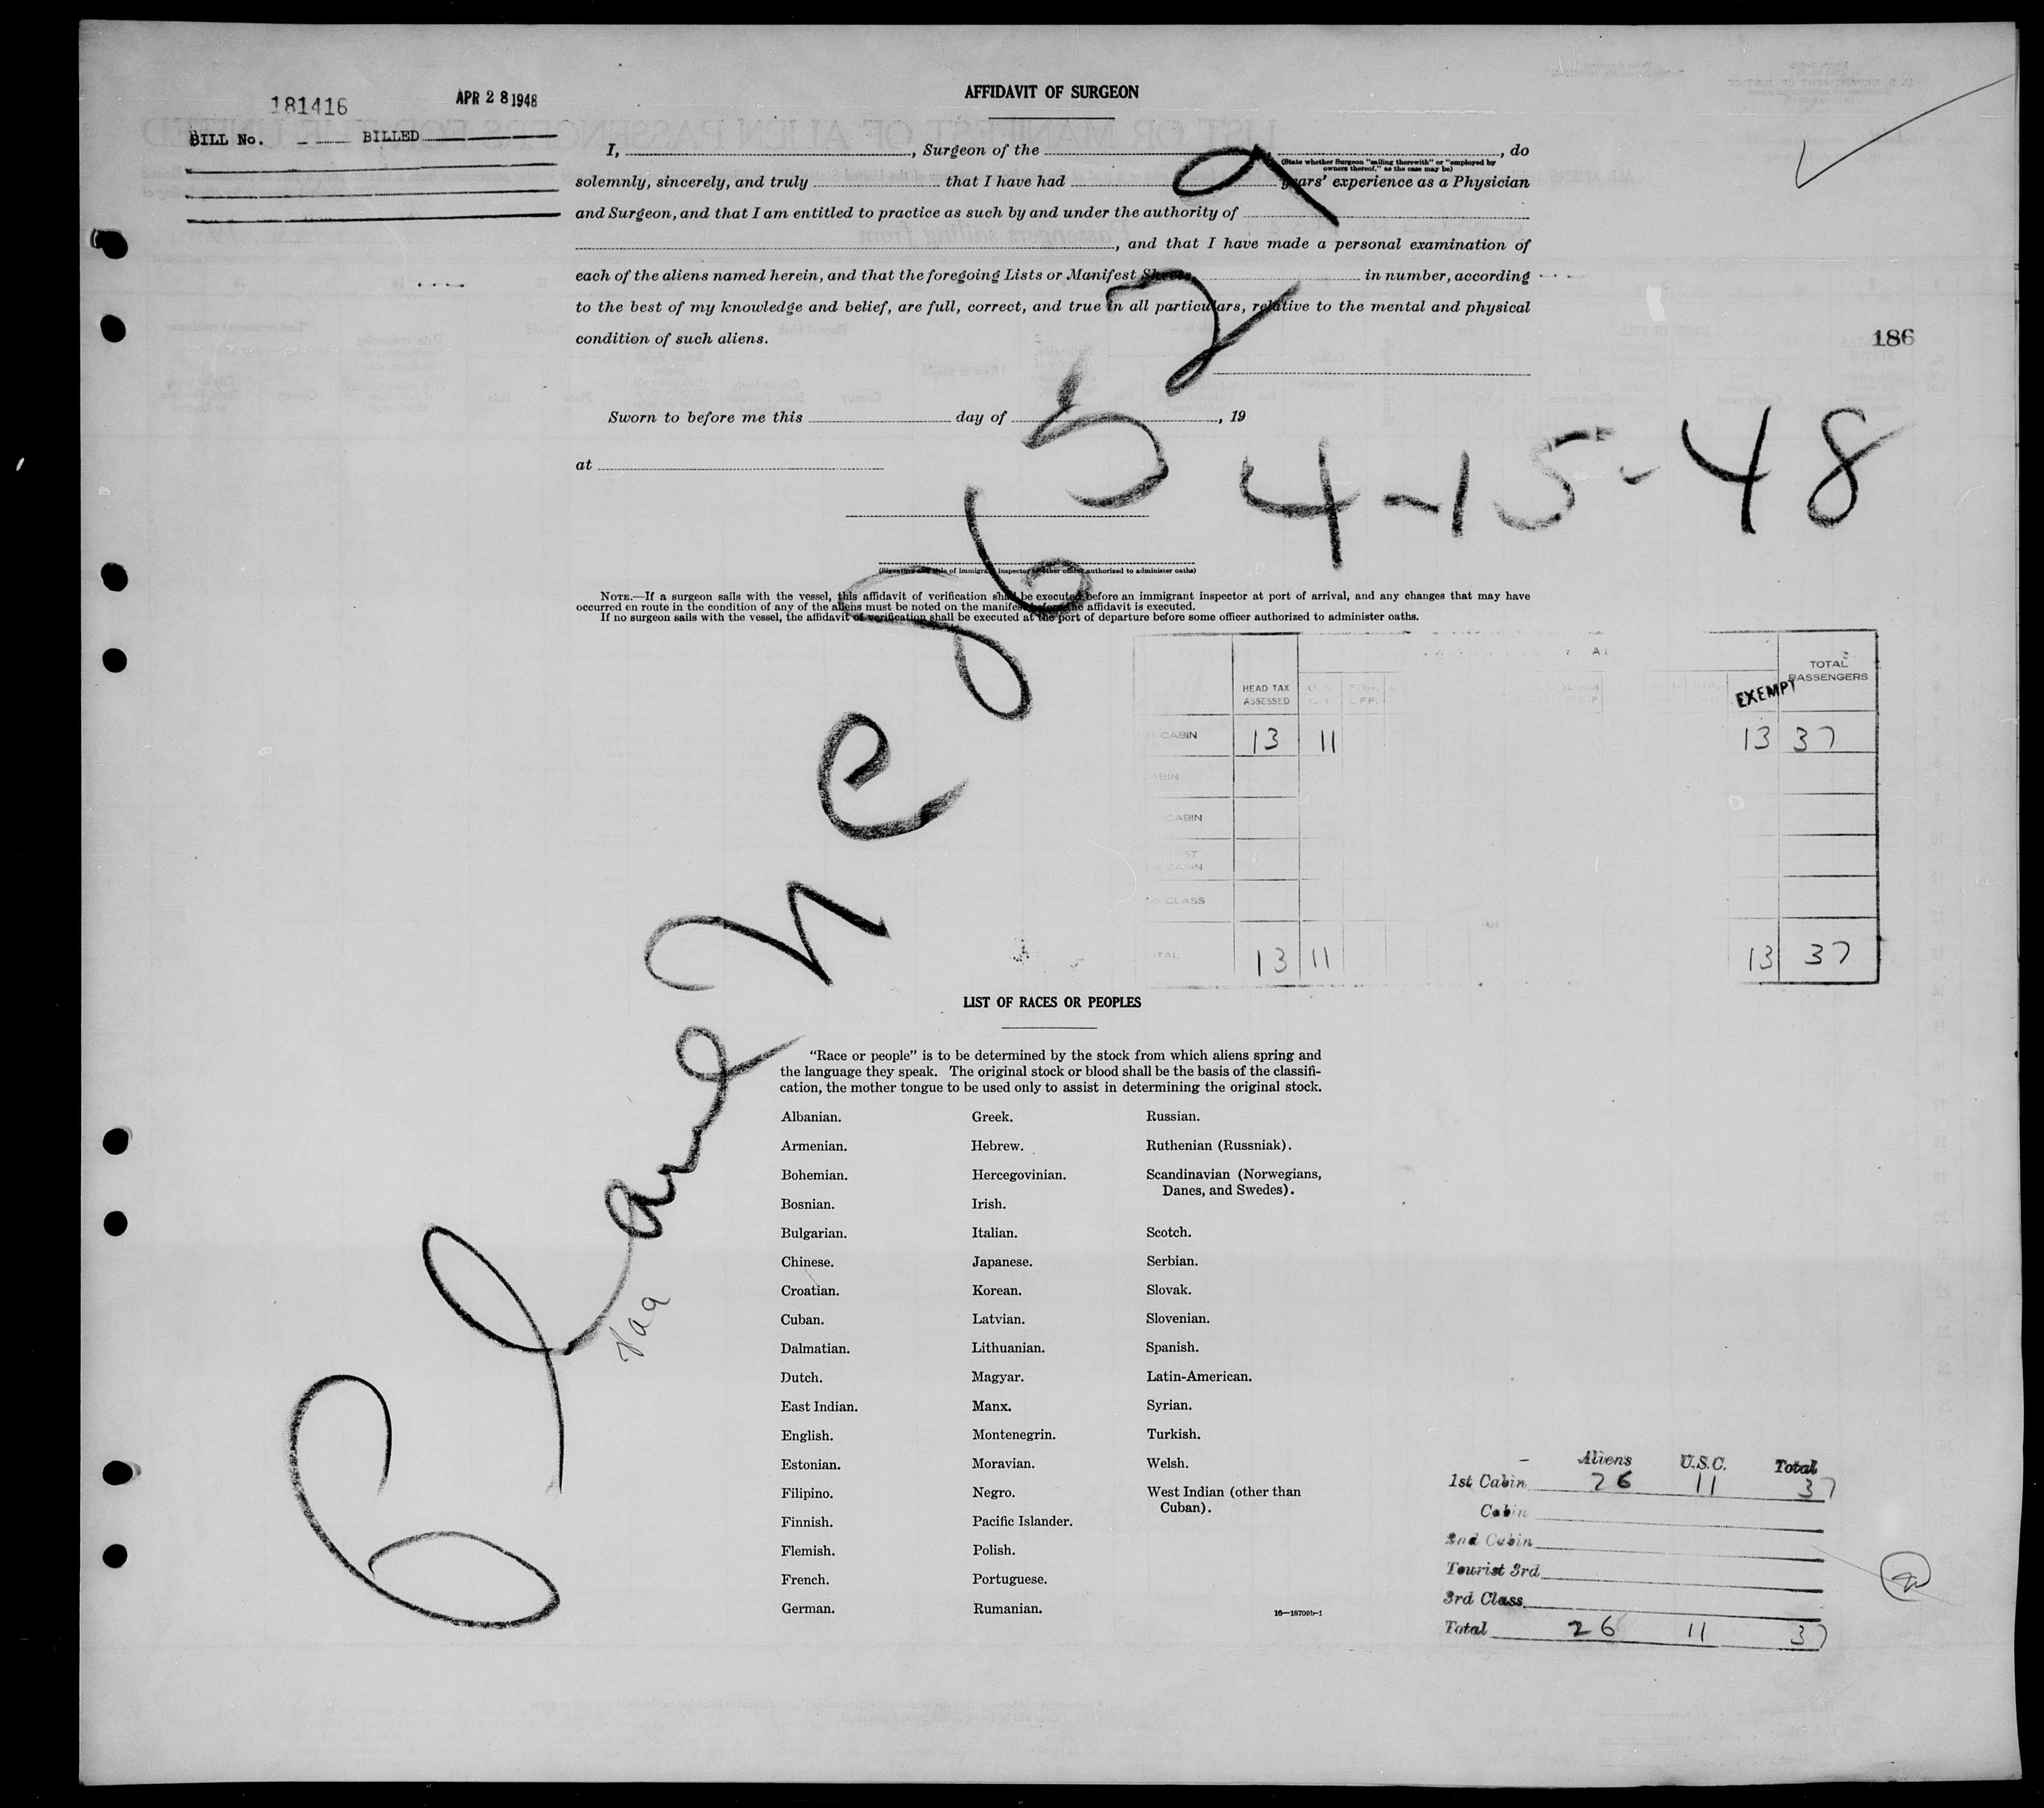 181416 APR 28 1948
BILL No. BILLED
AFFIDAVIT OF SURGEON
I, , Surgeon of the , , do
(State whether Surgeon "sailing therewith" or "employed by
owners thereof," as the case may be)
solemnly, sincerely, and truly that I have had years' experience as a Physician
and Surgeon, and that I am entitled to practice as such by and under the authority of
, and that I have made a personal examination of
each of the aliens named herein, and that the foregoing Lists or Manifest Sheets, in number, according
to the best of my knowledge and belief, are full, correct, and true in all particulars, relative to the mental and physical
condition of such aliens.
186
Sworn to before me this day of , 19
at
Plane N C 86529
4-15-48
(Signature and title of immigrant inspector or other officer authorized to administer oaths)
NOTE.—If a surgeon sails with the vessel, this affidavit of verification shall be executed before an immigrant inspector at port of arrival, and any changes that may have
occurred en route in the condition of any of the aliens must be noted on the manifest before the affidavit is executed.
If no surgeon sails with the vessel, the affidavit of verification shall be executed at the port of departure before some officer authorized to administer oaths.
HEAD TAX
ASSESSED
EXEMPT
TOTAL
PASSENGERS
CABIN 13 11 13 37
CABIN
CABIN
CLASS
TOTAL 13 11 13 37
LIST OF RACES OR PEOPLES
"Race or people" is to be determined by the stock from which aliens spring and
the language they speak. The original stock or blood shall be the basis of the classifi-
cation, the mother tongue to be used only to assist in determining the original stock.
Albanian.
Armenian.
Bohemian.
Bosnian.
Bulgarian.
Chinese.
Croatian.
Cuban.
Dalmatian.
Dutch.
East Indian.
English.
Estonian.
Filipino.
Finnish.
Flemish.
French.
German.
Greek.
Hebrew.
Hercegovinian.
Irish.
Italian.
Japanese.
Korean.
Latvian.
Lithuanian.
Magyar.
Manx.
Montenegrin.
Moravian.
Negro.
Pacific Islander.
Polish.
Portuguese.
Rumanian.
Russian.
Ruthenian (Russniak).
Scandinavian (Norwegians,
Danes, and Swedes).
Scotch.
Serbian.
Slovak.
Slovenian.
Spanish.
Latin-American.
Syrian.
Turkish.
Welsh.
West Indian (other than
Cuban).
16—18709b-1
Aliens U.S.C. Total
1st Cabin 26 11 37
Cabin
2nd Cabin
Tourist 3rd
3rd Class
Total 26 11 37